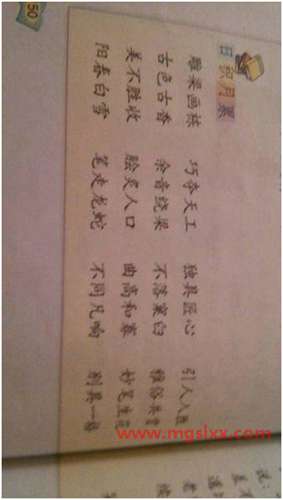 日积月累
雕梁画栋 巧夺天工 独具匠心 引人入胜
古色古香 余音绕梁 不落窠臼 雅俗共赏
美不胜收 脍炙人口 曲高和寡 妙笔生花
阳春白雪 笔走龙蛇 不同凡响 别具一格
www.mgslxx.com